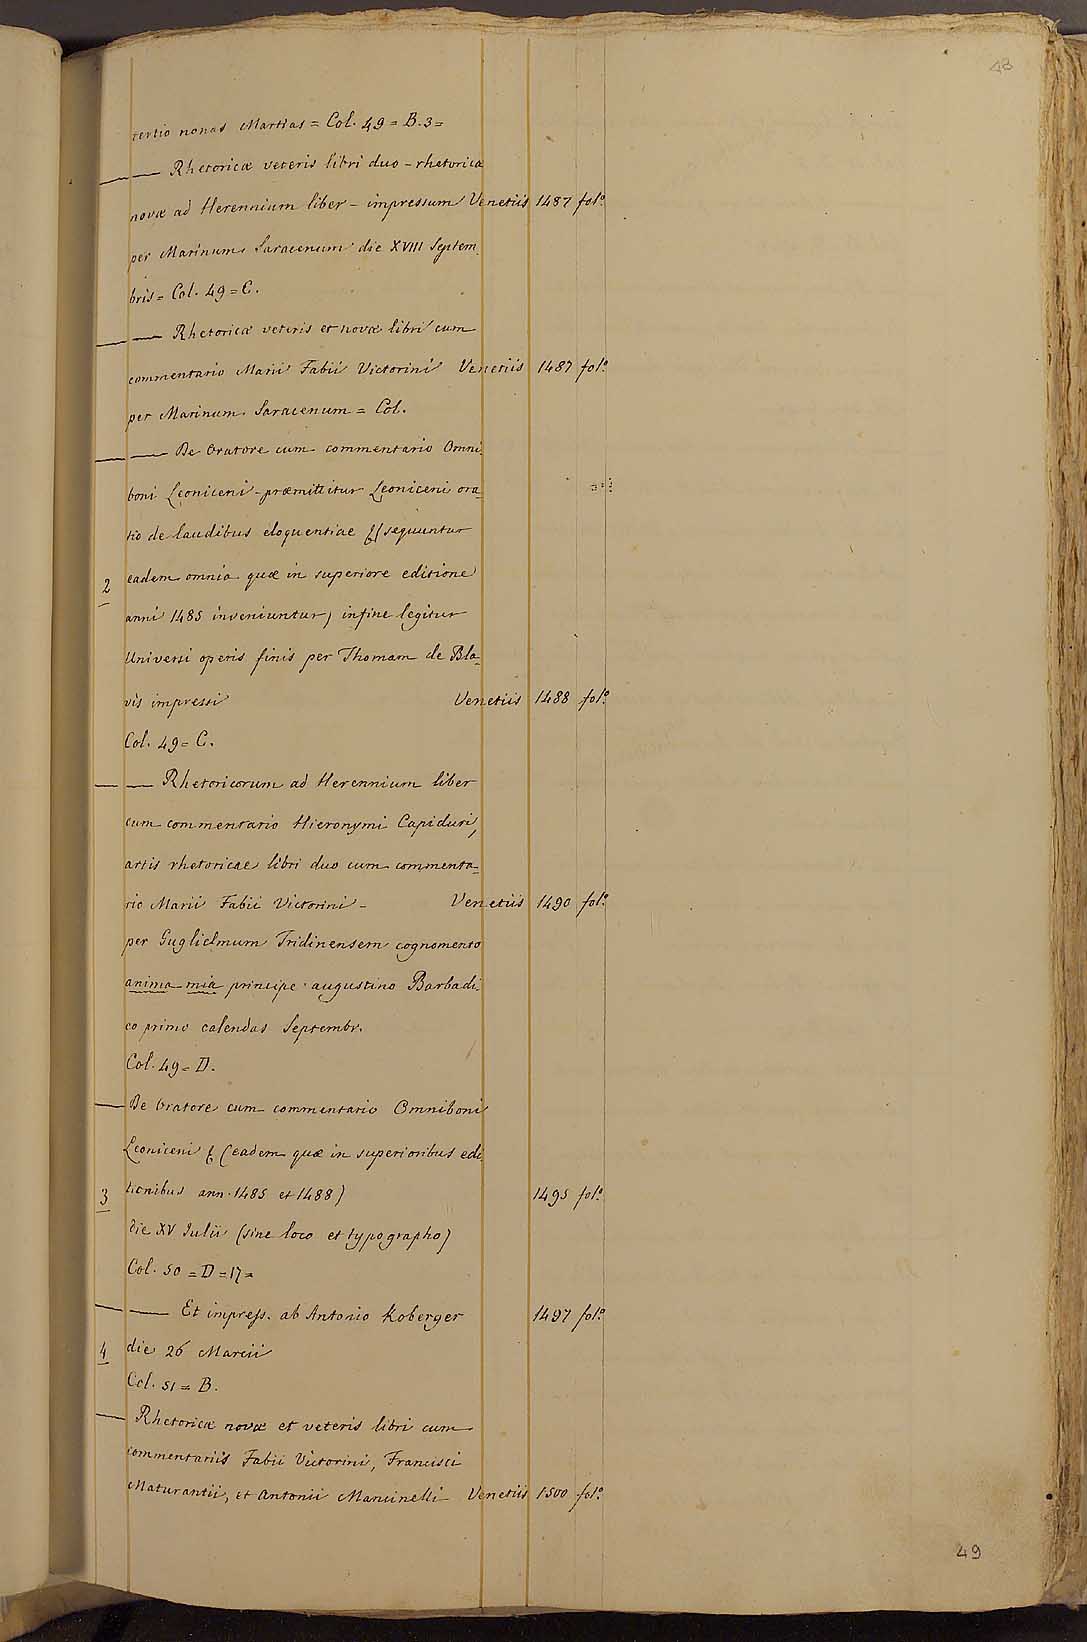 48
tertio nonas Martias = Col. 49 = B. 3 =
— — Rhetoricæ veteris libri duo - rhetoricæ
novæ ad Herennium liber - impressum Venetiis 1487 fol.º
per Marinum Saracenum die XVIII Septem
bris = Col. 49 = C.
— — Rhetoricæ veteris et novæ libri cum
commentario Marii Fabii Victorini Venetiis 1487 fol.º
per Marinum Saracenum = Col.
— — De Oratore cum commentario Omni
boni Leoniceni - præmittitur Leoniceni ora=
tio de laudibus eloquentiae sequuntur
2 eadem omnia quæ in superiore editione
anni 1485 inveniuntur) in fine legitur
Universi operis finis per Thomam de Bla=
vis impressi Venetiis 1488 fol.º
Col. 49 = C.
— — Rhetoricorum ad Herennium liber
cum commentario Hieronymi Capiduri,
artis rhetoricae libri duo cum commenta=
rio Marii Fabii Victorini - Venetiis 1490 fol.º
per Guglielmum Tridinensem cognomento
anima mia principe augustino Barbadi
co primo calendas Septembr.
Col. 49 = D.
— De Oratore cum commentario Omniboni
Leoniceni & (eadem quæ in superioribus edi
3 tionibus ann. 1485 et 1488) 1495 fol.º
die XV Iulii (sine loco et typographo)
Col. 50 = D = 17 =
— — Et impress. ab Antonio Koberger 1497 fol.º
4 die 26 Marcii
Col. 51 = B.
— Rhetoricæ novæ et veteris libri cum
commentariis Fabii Victorini, Francisci
Maturantii, et Antonii Mancinelli Venetiis 1500 fol.º
49